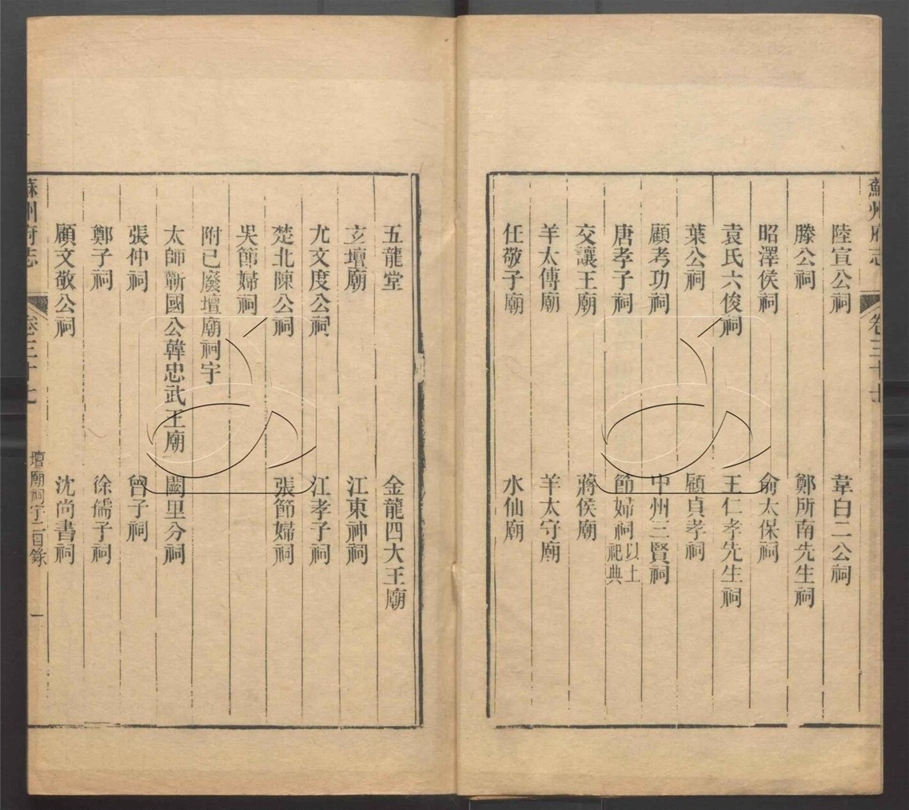 蘇州府志 卷三十七
陸宣公祠 韋白二公祠
滕公祠 鄭所南先生祠
昭澤侯祠 俞太保祠
袁氏六俊祠 王仁孝先生祠
葉公祠 顧貞孝祠
顧考功祠 中州三賢祠
唐孝子祠 節婦祠以上祀典
交讓王廟 蔣侯廟
羊太傅廟 羊太守廟
任敬子廟 水仙廟
五龍堂 金龍四大王廟
玄壇廟 江東神祠
尤文度公祠 江孝子祠
楚北陳公祠 張節婦祠
吳節婦祠
附已廢壇廟祠宇
太師蘄國公韓忠武王廟 闕里分祠
張仲祠 曾子祠
鄭子祠 徐孺子祠
顧文敬公祠 沈尚書祠
蘇州府志 卷三十七 壇廟祠宇二目錄 一